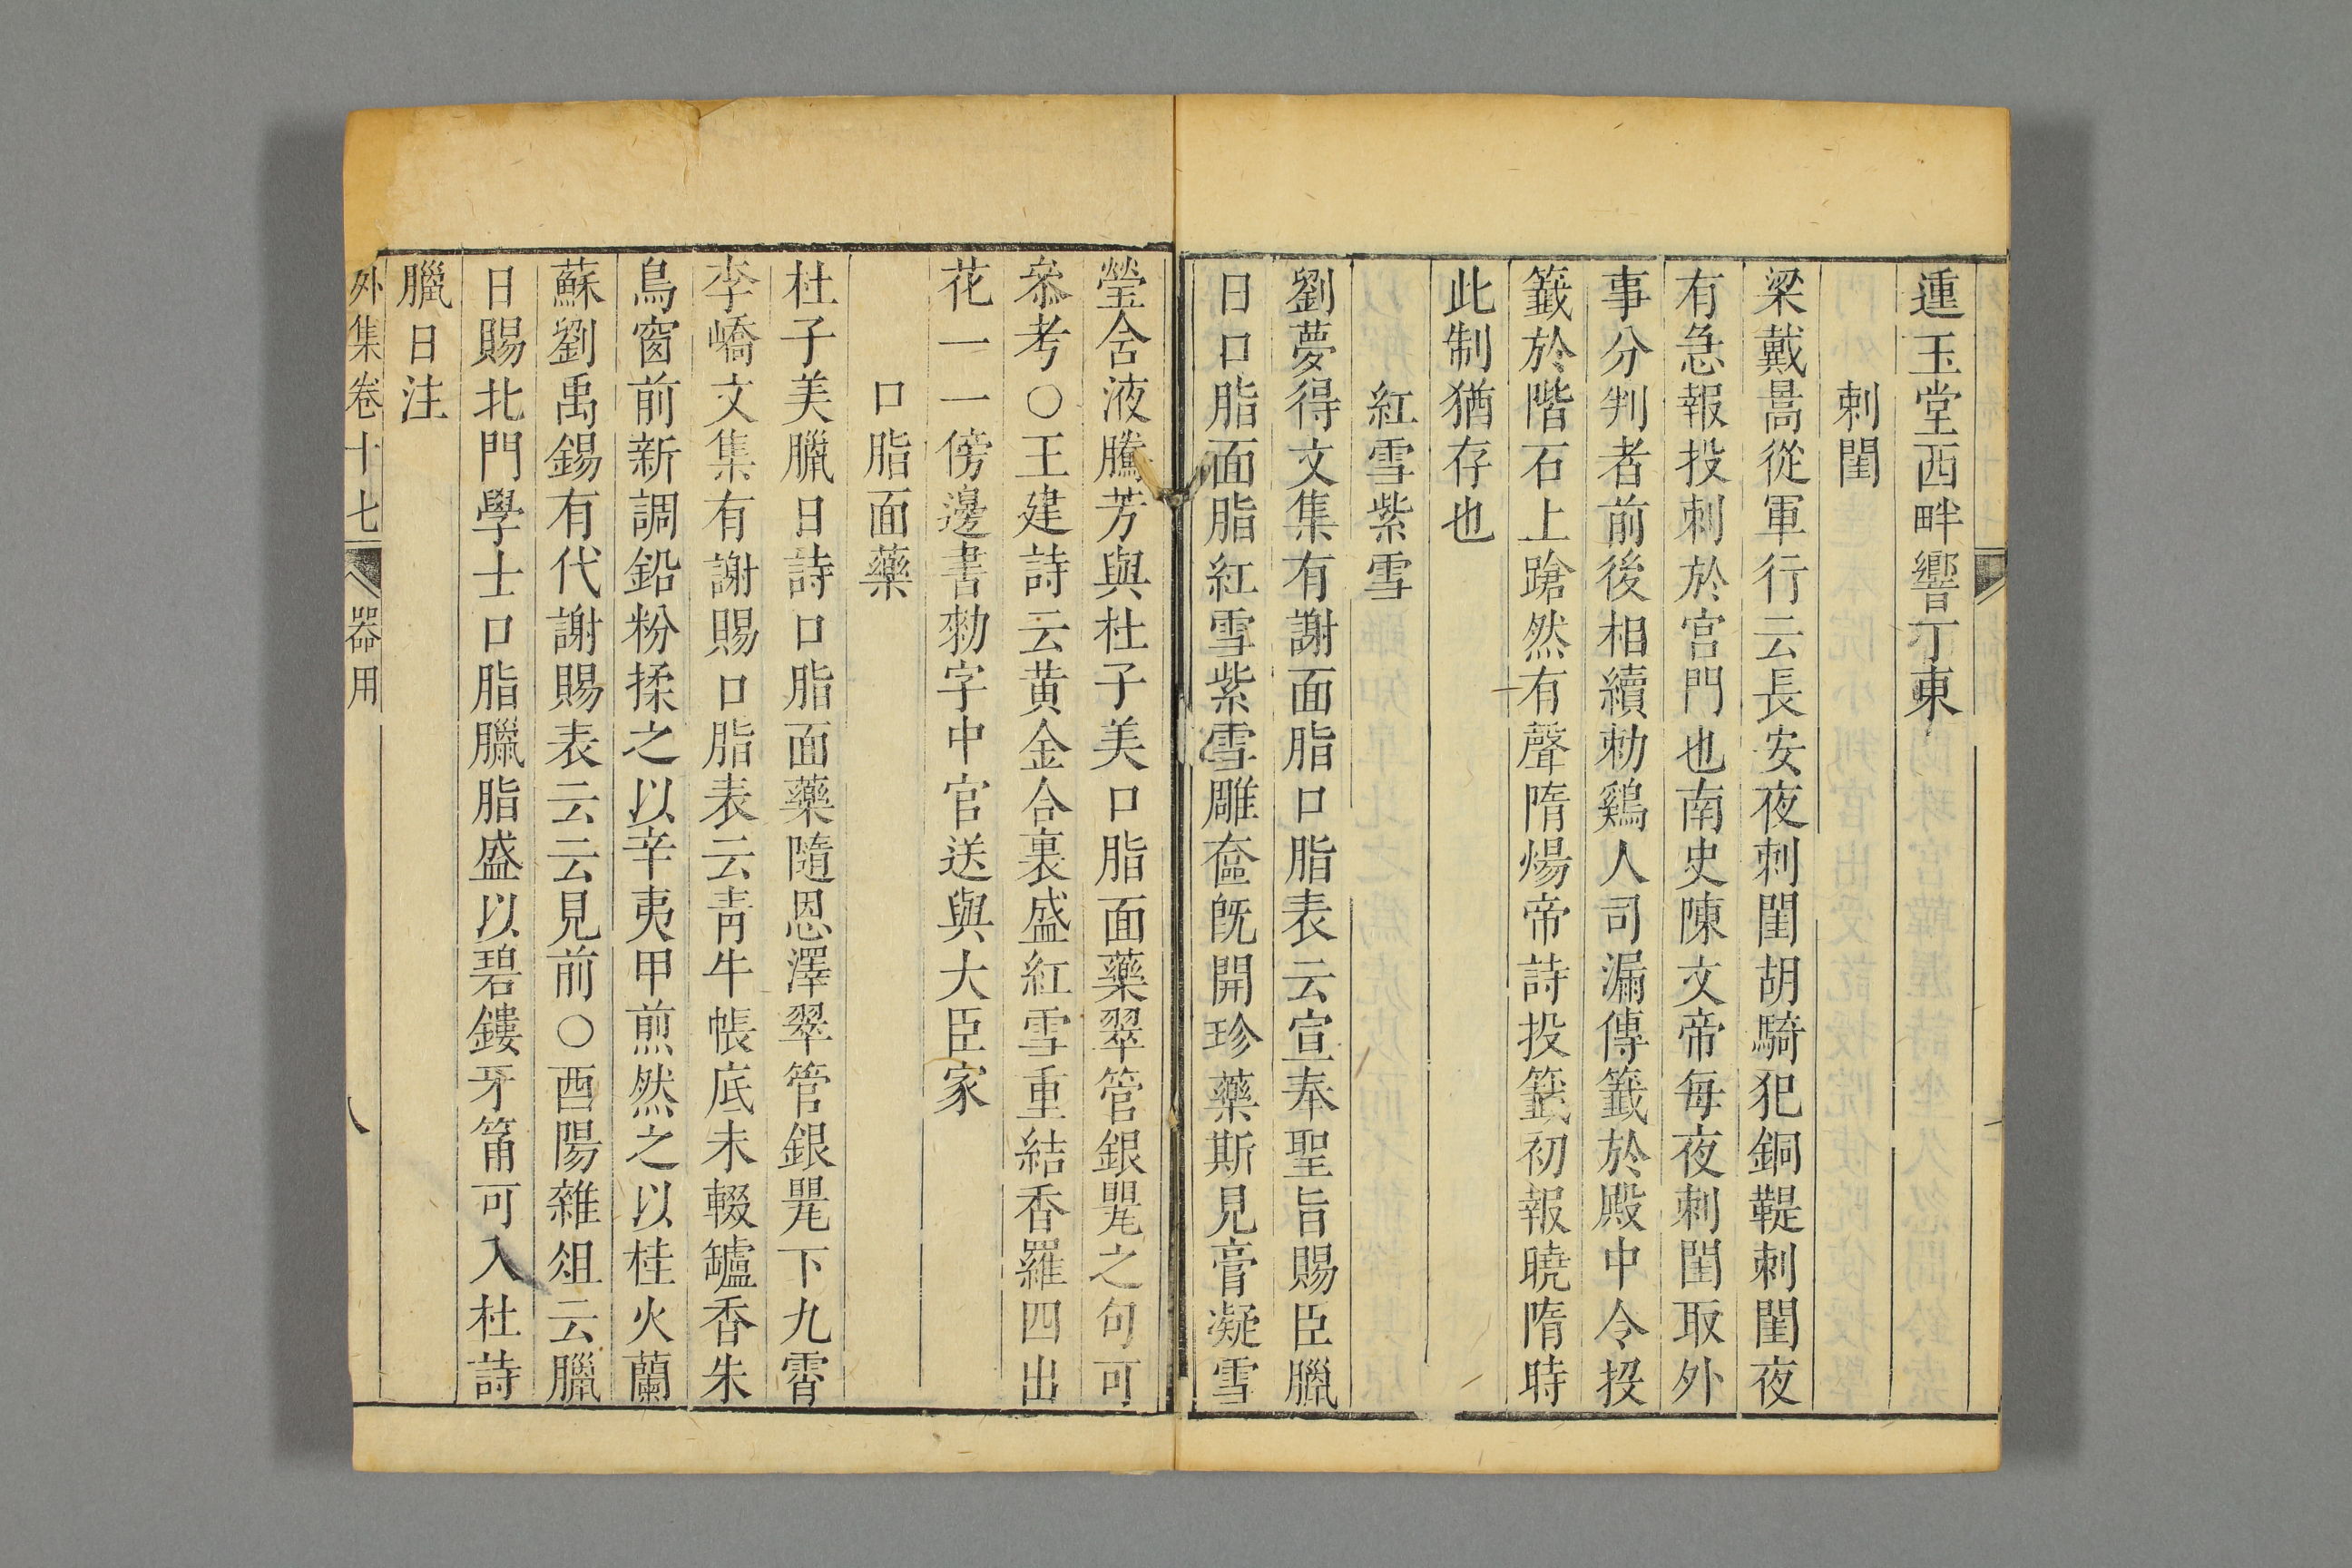 連玉堂西畔響丁東
刺閨
梁戴暠從軍行云長安夜刺閨胡騎犯銅鞮刺閨夜
有急報投刺於宮門也南史陳文帝每夜刺閨取外
事分判者前後相續勅鷄人司漏傳籖於殿中令投
籖於階石上蹌然有聲隋煬帝詩投籖初報曉隋時
此制猶存也
紅雪紫雪
劉夢得文集有謝面脂口脂表云宣奉聖旨賜臣臘
日口脂面脂紅雪紫雪雕奩旣開珍藥斯見膏凝雪
瑩含液騰芳與杜子美口脂面藥翠管銀甖之句可
叅考○王建詩云黄金合裏盛紅雪重結香羅四出
花一一傍邊書勅字中官送與大臣家
口脂面藥
杜子美臘日詩口脂面藥隨恩澤翠管銀甖下九霄
李嶠文集有謝賜口脂表云靑牛帳底未輟罏香朱
鳥窗前新調鉛粉揉之以辛夷甲煎然之以桂火蘭
蘇劉禹錫有代謝賜表云云見前○酉陽雜俎云臘
日賜北門學士口脂臘脂盛以碧鏤牙筩可入杜詩
臘日注
外集卷十七 器用 八